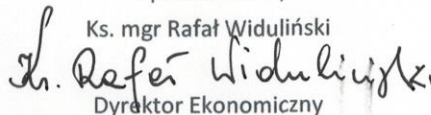 Ks. mgr Rafał Widuliński
Ks. Rafał Widuliński
Dyrektor Ekonomiczny